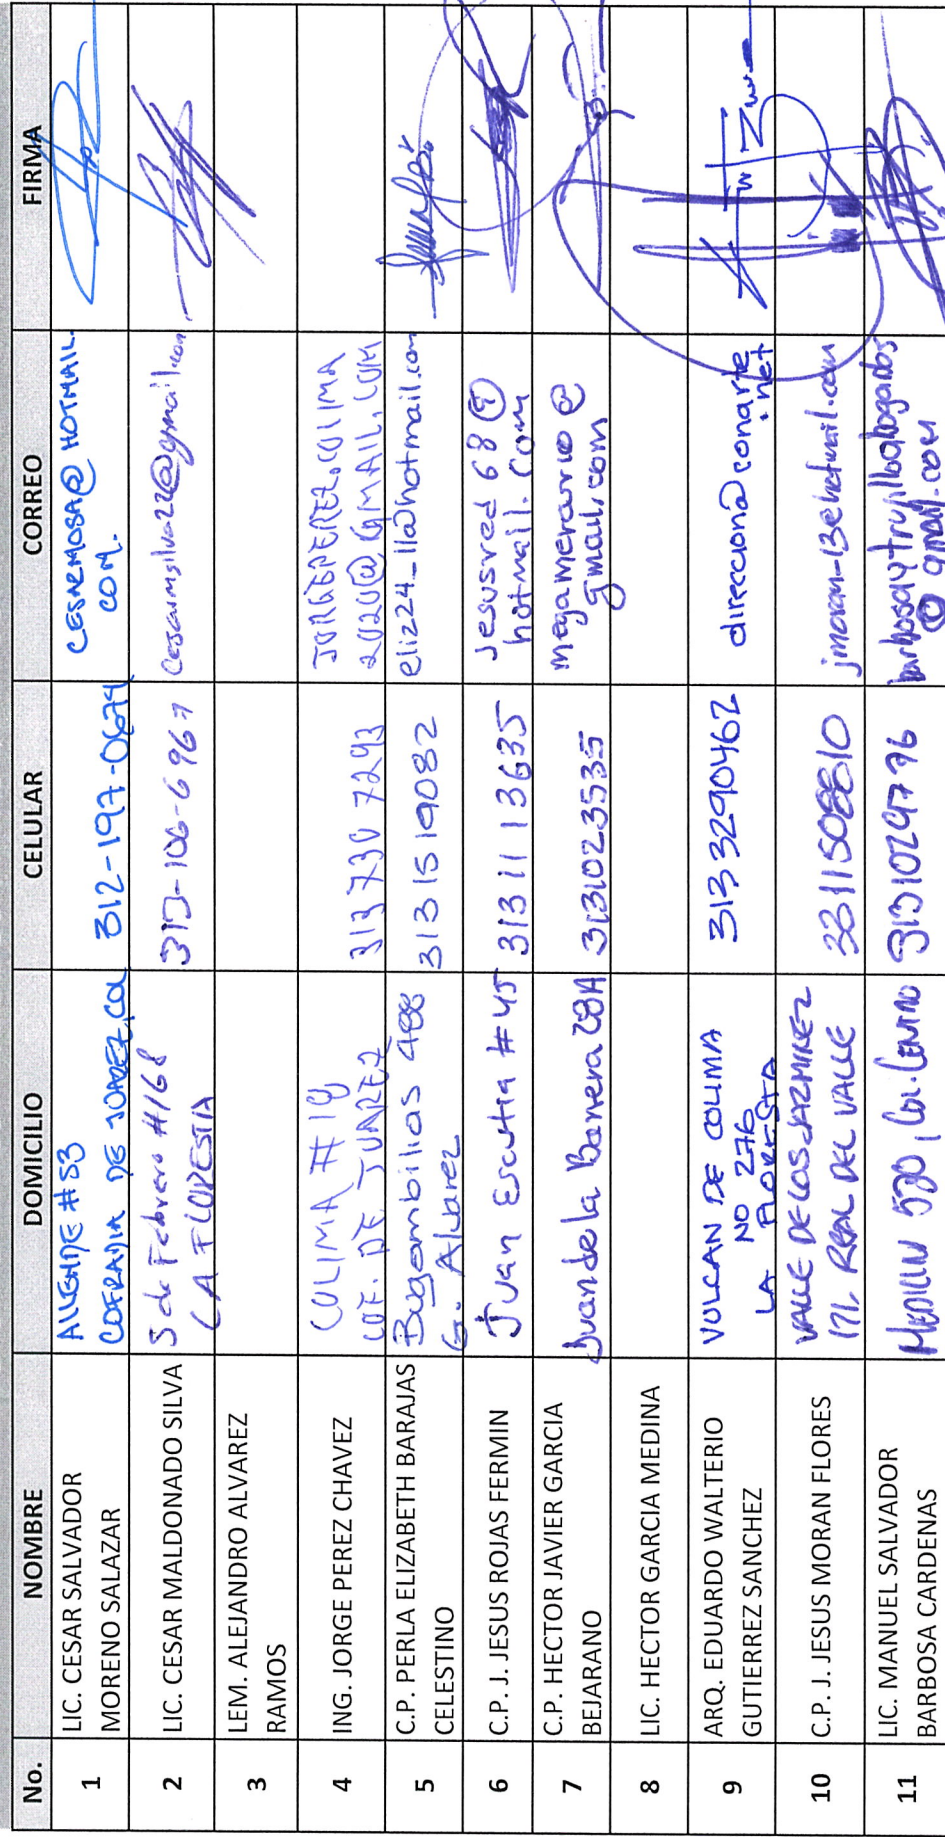 No. NOMBRE DOMICILIO CELULAR CORREO FIRMA
1 LIC. CESAR SALVADOR MORENO SALAZAR
#53
COFRADIA DE JUAREZ, COL
312-197-0674
CESARMOSA@HOTMAIL.
COM.
2 LIC. CESAR MALDONADO SILVA
5 de Febrero #168
LA FLORESTA
313-106-6967
cesarmsilva22@gmail.com
3 LEM. ALEJANDRO ALVAREZ
RAMOS
4 ING. JORGE PEREZ CHAVEZ
COLIMA #19
COF. DE JUAREZ
313 730 7293
JORGEPEREZ.COLIMA
2020@GMAIL.COM
5 C.P. PERLA ELIZABETH BARAJAS
CELESTINO
Bugambilias 488
G. Alvarez
313 1519082
eliz24_11@hotmail.com
6 C.P. J. JESUS ROJAS FERMIN
Juan Escutia #45
313 11 1 3635
Jesusred68@
hotmail.com
7 C.P. HECTOR JAVIER GARCIA
BEJARANO
Juan de la Barrera 28A
3131023535
megamerario@
gmail.com
8 LIC. HECTOR GARCIA MEDINA
9 ARQ. EDUARDO WALTERIO
GUTIERREZ SANCHEZ
VOLCAN DE COLIMA
NO 276
LA FLORESTA
313 3290462
direccion@conarte
.net
10 C.P. J. JESUS MORAN FLORES
VALLE DE LOS JAZMINEZ
171, REAL DEL VALLE
3311508810
jmoran-13@hotmail.com
11 LIC. MANUEL SALVADOR
BARBOSA CARDENAS
MEDILLIN 530, COL. CENTRO
3131029776
barbosaytrujilloabogados
@gmail.com